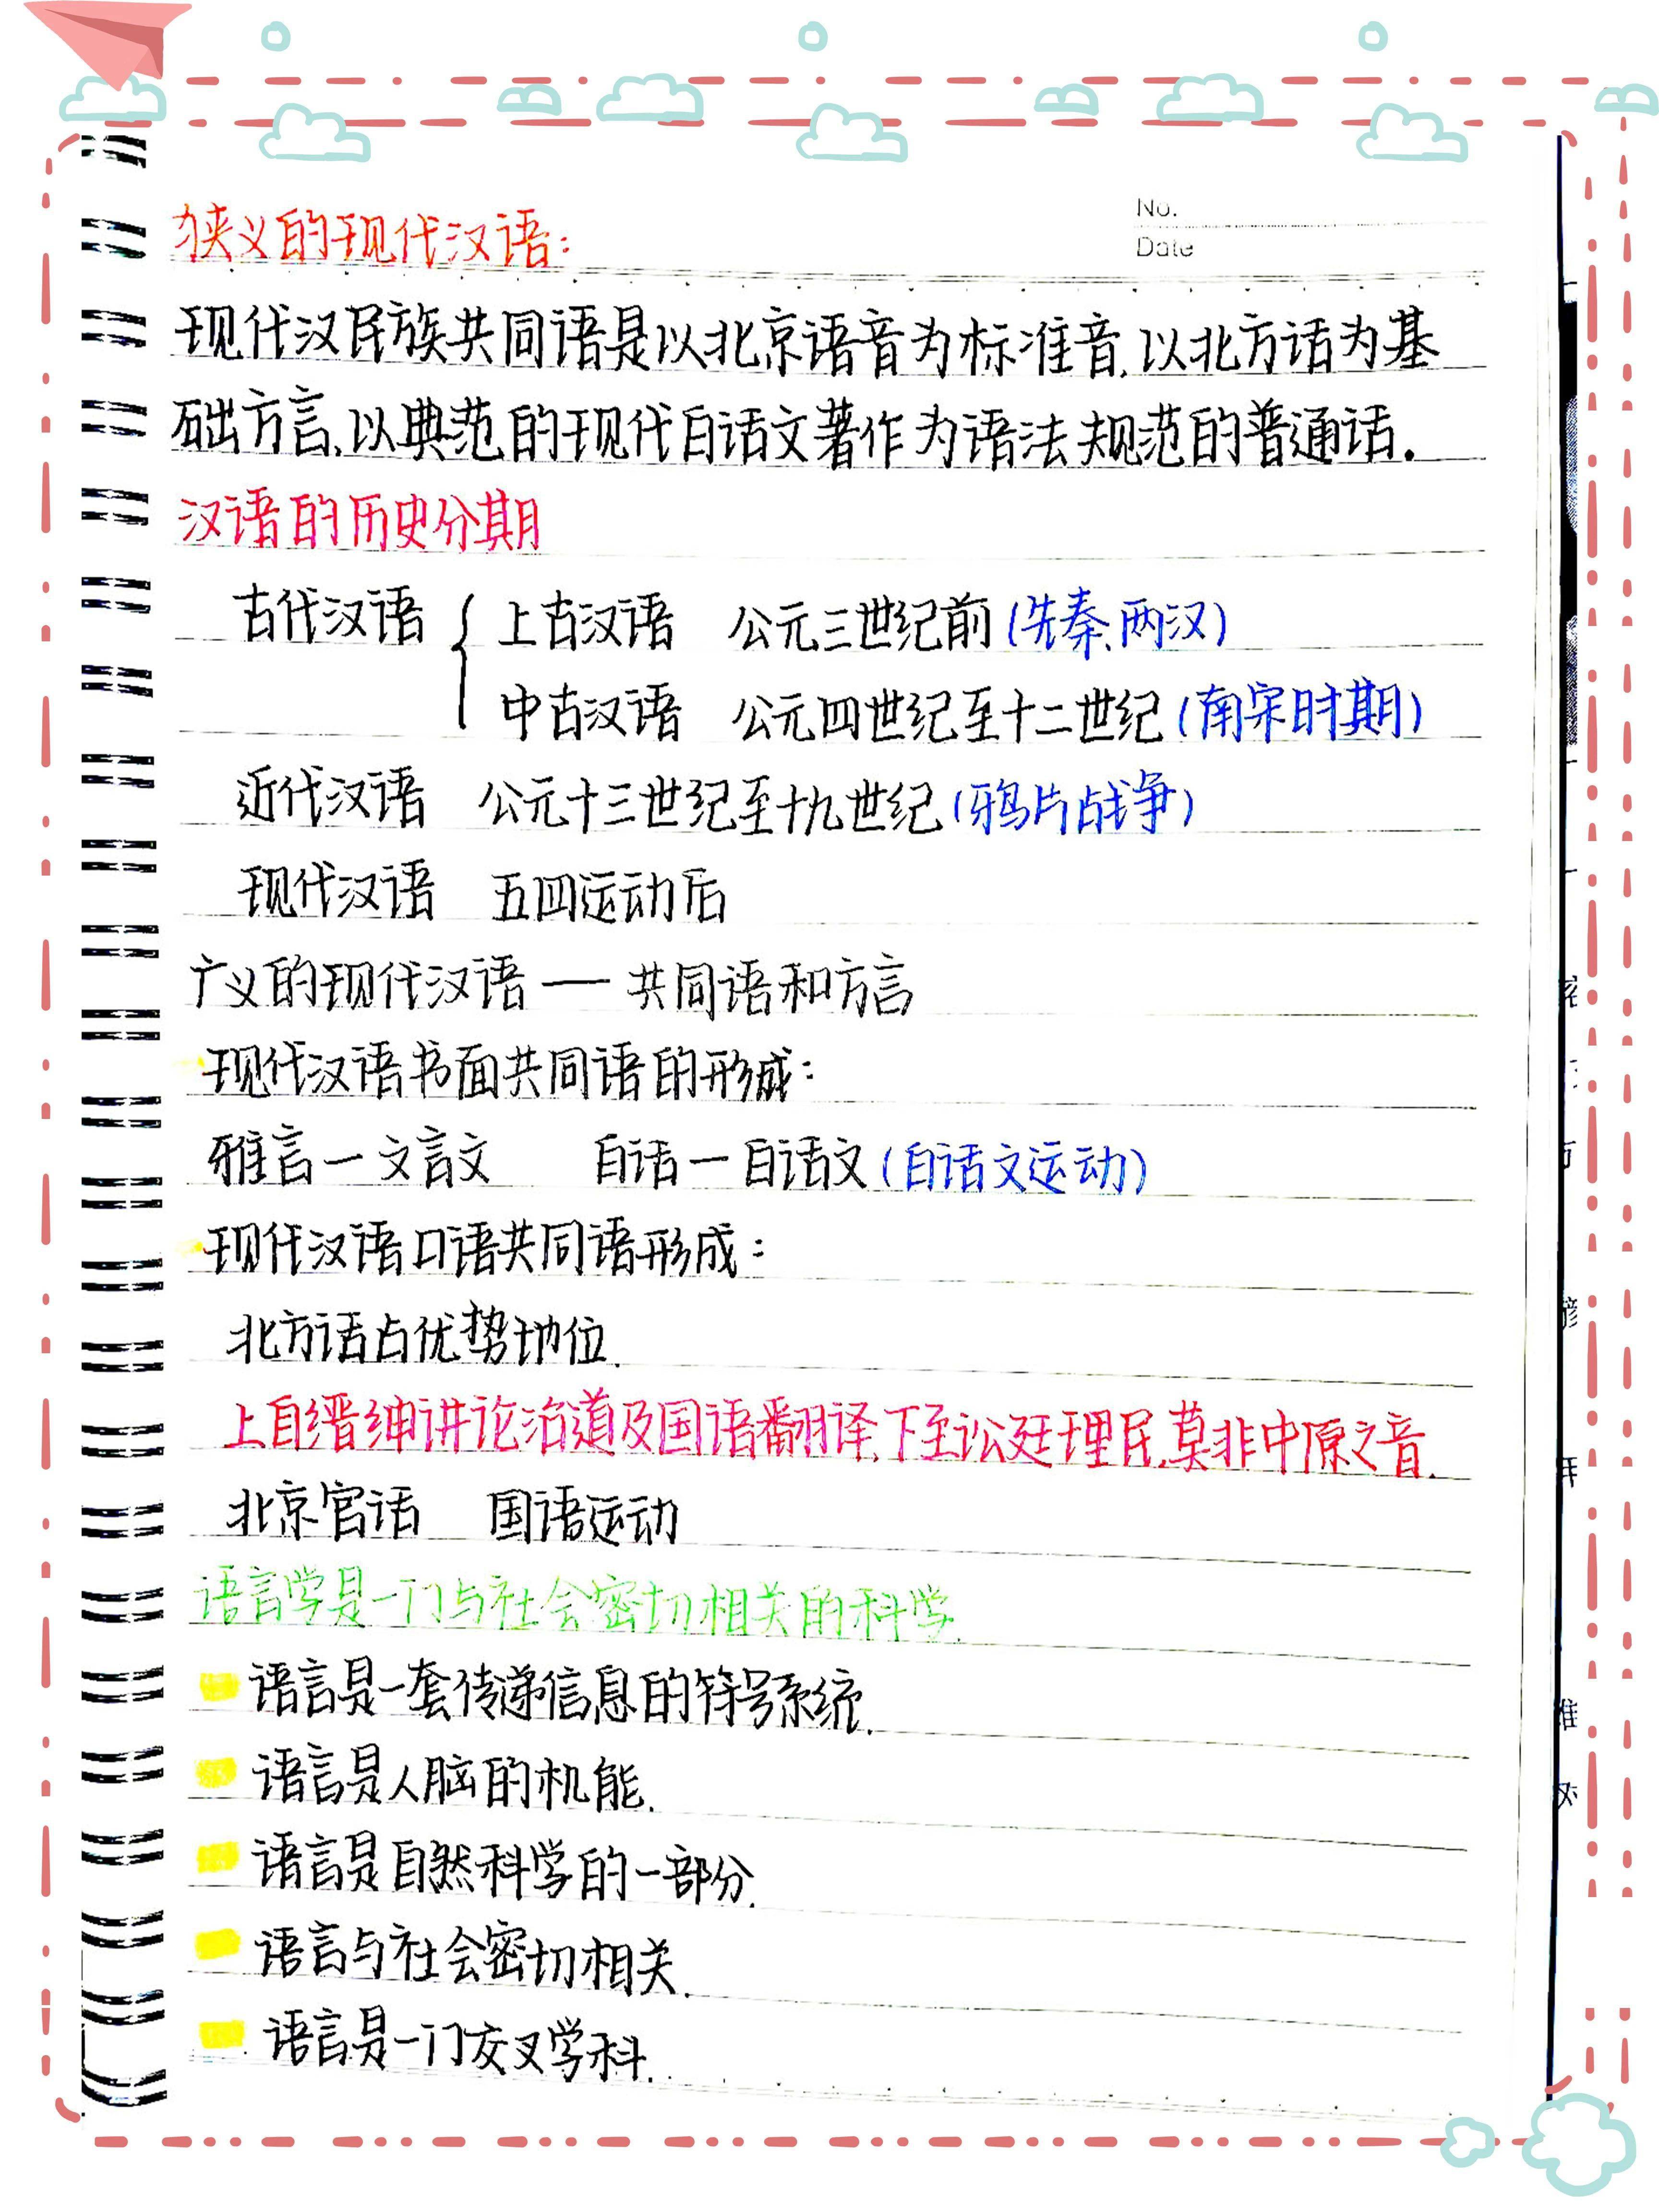 No.
Date
狭义的现代汉语:
现代汉民族共同语是以北京语音为标准音,以北方话为基
础方言,以典范的现代白话文著作为语法规范的普通话.
汉语的历史分期
古代汉语 { 上古汉语 公元三世纪前(先秦、两汉)
中古汉语 公元四世纪至十二世纪(南宋时期)
近代汉语 公元十三世纪至十九世纪(鸦片战争)
现代汉语 五四运动后
广义的现代汉语 — 共同语和方言
现代汉语书面共同语的形成:
雅言—文言文 白话—白话文(白话文运动)
现代汉语口语共同语形成:
北方话占优势地位.
上自缙绅讲论治道及国语翻译,下至讼廷理民,莫非中原之音.
北京官话 国语运动
语言学是一门与社会密切相关的科学.
语言是一套传递信息的符号系统.
语言是人脑的机能.
语言是自然科学的一部分.
语言与社会密切相关.
语言是一门交叉学科.